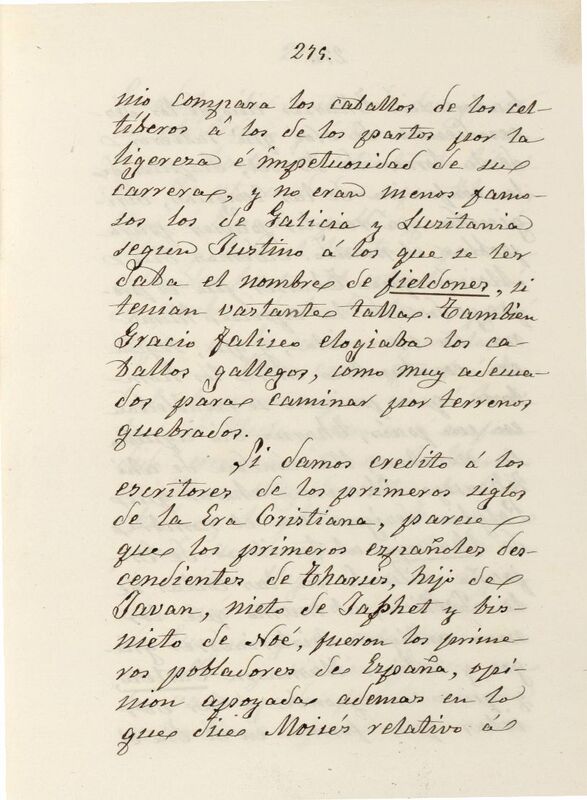 275.
nio compara los caballos de los cel-
tiberos á los de los partos por la
ligereza é impetuosidad de su
carrera, y no eran menos famo-
sos los de Galicia y Luzitania
segun Justino á los que se les
daba el nombre de fieldones, si
tenian vastante talla. Tambien
Gracio Falisco elogiaba los ca-
ballos gallegos, como muy adecua-
dos para caminar por terrenos
quebrados.
Si damos credito á los
escritores de los primeros siglos
de la Era Cristiana, parece
que los primeros españoles des-
cendientes de Tharsis, hijo de
Javan, nieto de Japhet y bis-
nieto de Noé, fueron los prime-
ros pobladores de España, opi-
nion apoyada ademas en lo
que dice Moisés relativo á